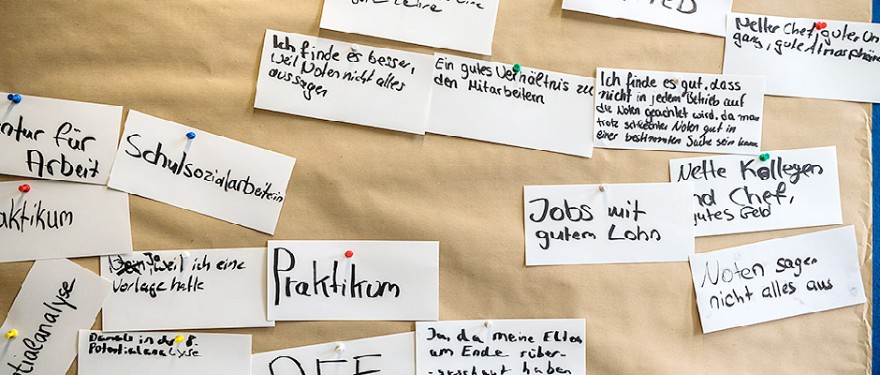 gute Lehre
Netter Chef, guter Um
gang, gute Atmosphäre
Ich finde es besser,
weil Noten nicht alles
aussagen
Ein gutes Verhältnis zu
den Mitarbeitern
Ich finde es gut, dass
nicht in jedem Betrieb auf
die Noten geachtet wird, da man
trotz schlechter Noten gut in
einer bestimmten Sache sein kann
ntur für
Arbeit
Schulsozialarbeiterin
aktikum
Nette Kollegen
nd Chef,
gutes Geld
Jobs mit
gutem Lohn
Noten sagen
nicht alles aus
Ja, weil ich eine
Vorlage hatte
Praktikum
tialanalyse
Damals in der 8.
Potentialanalyse
Ja, da meine Eltern
am Ende rüber-
geschaut haben